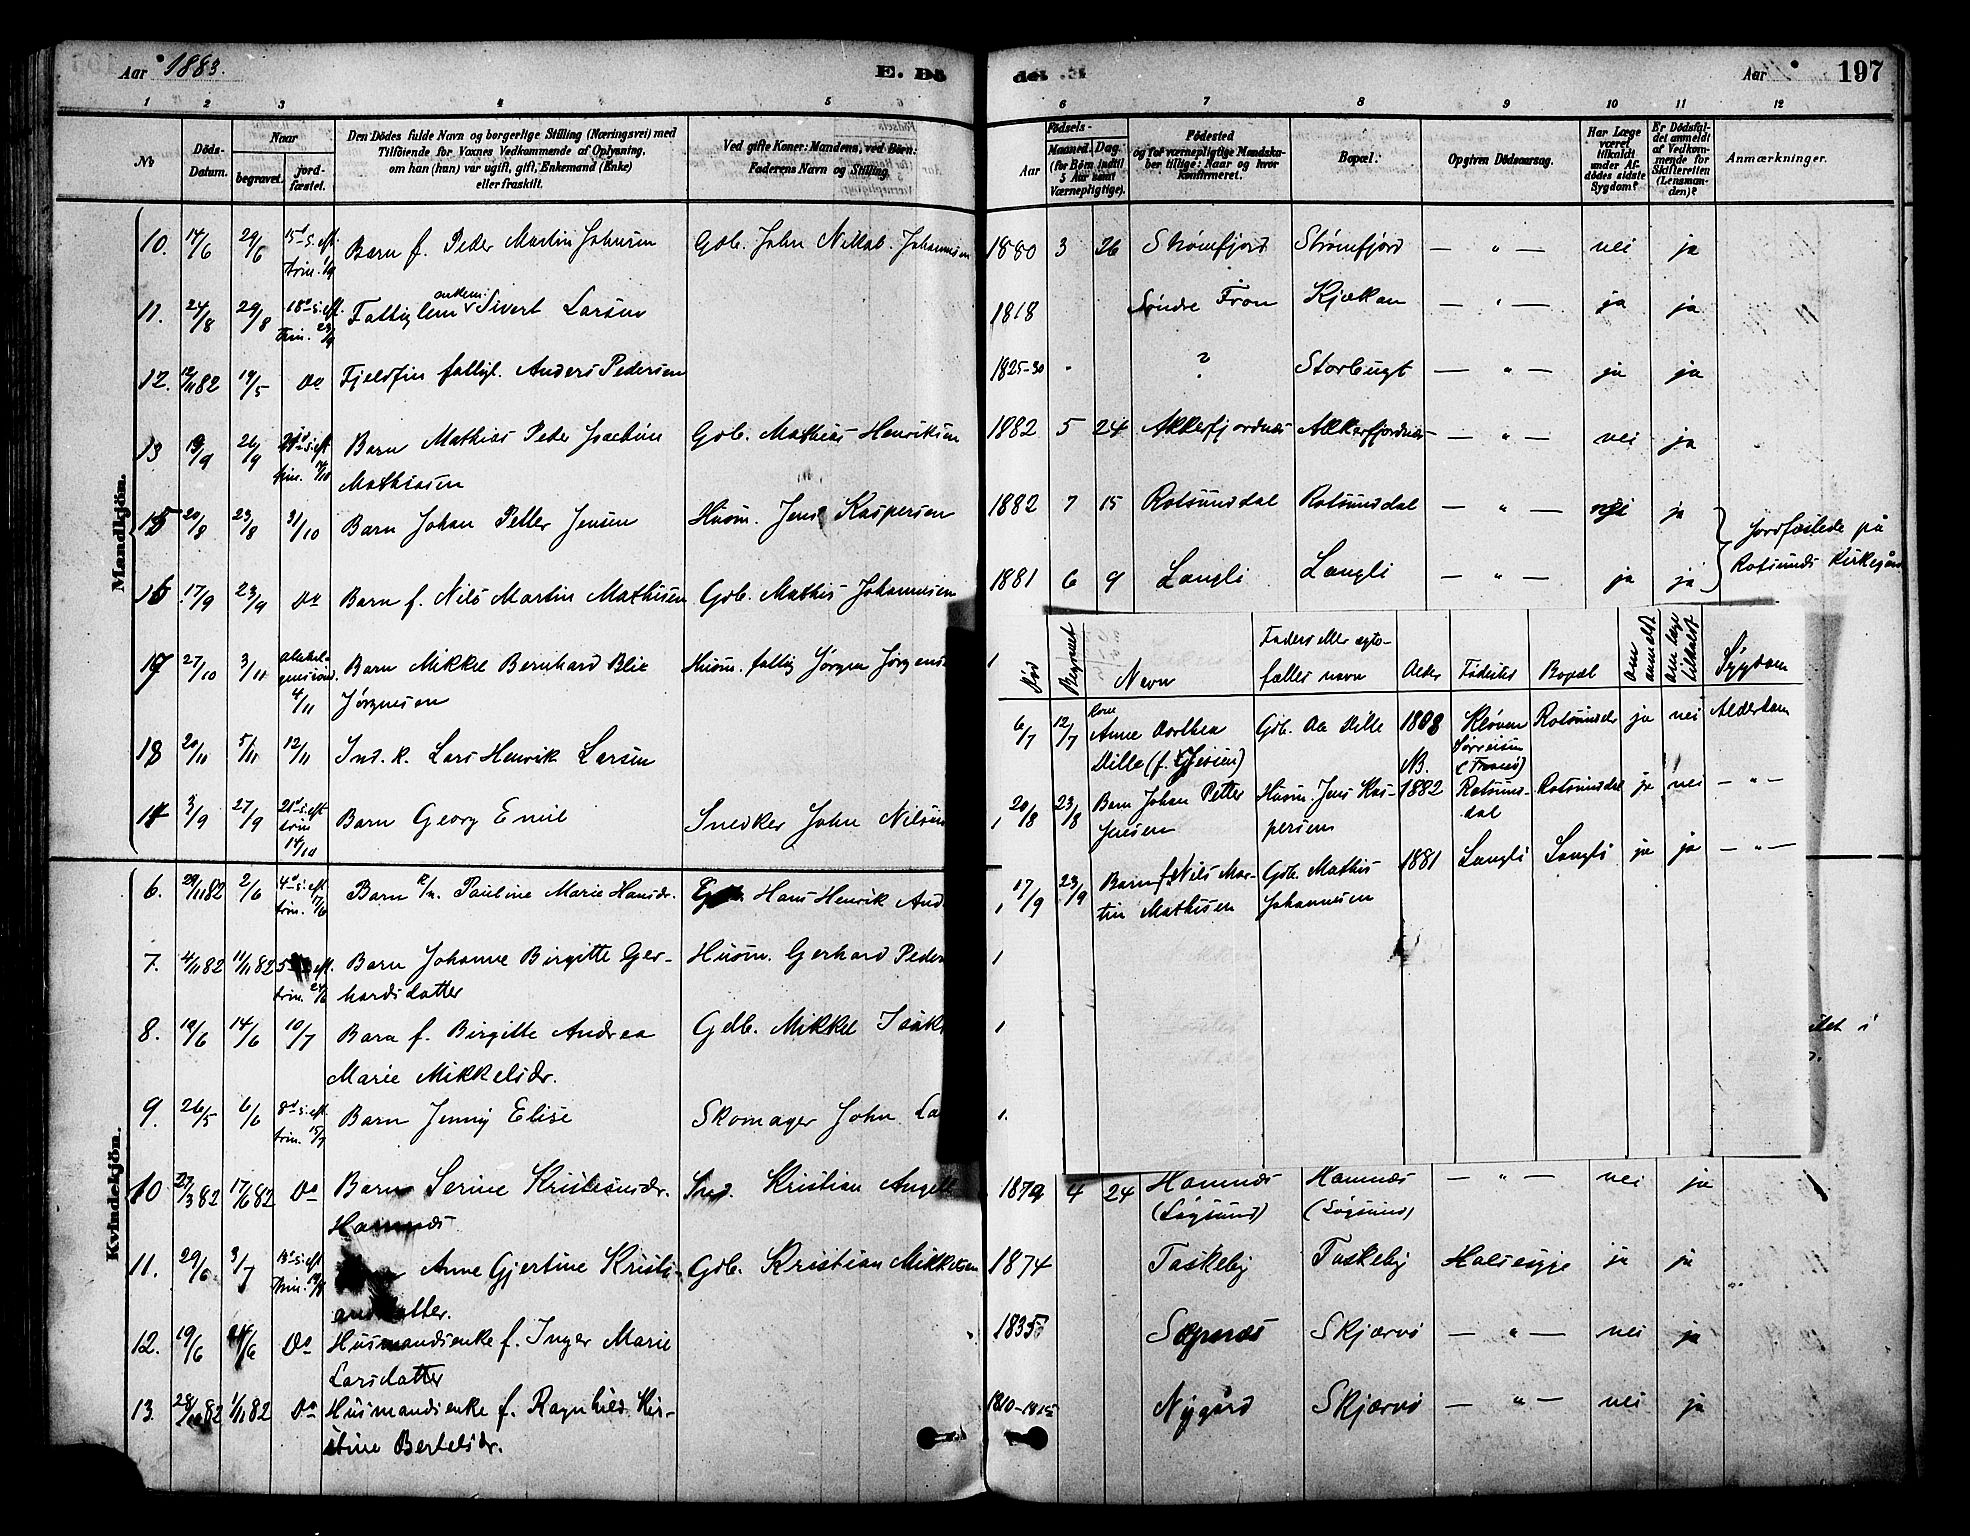 Aar 1883. E. Dö
1 2 3 4 5
No Döds-Datum. Naar begravet. jordfæstet. Den Dödes fulde Navn og borgerlige Stilling (Næringsvei) med Tilföiende for Voxnes Vedkommende af Oplysning, om han (hun) var ugift, gift, Enkemand (Enke) eller fraskilt. Ved gifte Koner: Mandens, ved Börn: Faderens Navn og Stilling.
Mandkjön.
10. 14/6 29/6 15de s. eft. trin. Barn f. Peder Martin Johnsen Gdb. John Niklal. Johannesen
11. 24/8 29/8 18de s. eft. Trin. 23/9 Fattiglem enkem. Sivert Larsen
12. 12/11 82 14/5 Do Fjeldfin fattigl. Anders Pedersen
13 19/9 26/9 s. eft. trin. Barn Mathias Peder Joachim Mathiasen Gdb. Mathias Henriksen
15 20/8 23/8 31/10 Barn Johan Petter Jensen Husm. Jens Kaspersen
16 17/9 23/9 Do Barn f. Nils Martin Mathisen Gdb. Mathis Johannesen
17 27/10 3/11 4/11 Barn Mikkel Bernhard Blix Jørgensen Husm. fattig Jørgen Jørgens
18 20/11 5/11 12/11 Ind. k. Lars Henrik Larsen
14 3/9 27/9 21de s. eft. trin 14/10 Barn Georg Emil Snedker John Nilsen
Kvindekjön.
6. 29/11 82 2/6 4de s. eft. trin. 17/6 Barn k/n. Pauline Marie Hansdr. Hans Henrik And
7. 4/11 82 11/11 82 5 eft. trin. 24/6 Barn Johanne Birgitte Gerhardsdatter Husm. Gerhard Peder
8. 10/6 14/6 10/7 Barn f. Birgitte Andrea Marie Mikkelsdr. Gdb. Mikkel Isak
9. 26/5 6/6 8de s. eft. trin. 15/7 Barn Jenny Elise Skomager John La
10 27/3 82 17/6 82 Do Barn Serine Kristensdr. Hamnæs Ind. Kristian Angell
11. 29/6 3/7 13de s. eft. Trin. Anne Gjertine Kristiansdatter. Gdb. Kristian Mikkelsen
12. 19/6 Do Husmandsenke f. Inger Marie Larsdatter
13. 28/10 82 1/11 82 Do Husmandsenke f. Ragnhild Kirstine Bertelsdr.
del .E Aar 197
6 7 8 9 10 11 12
Födsels- Aar Maaned. Dag. (for Börn indtil 5 Aar samt Værnepligtige). Födested og for værnepligtige Mandskaber tillige: Naar og hvor konfirmeret. Bopæl. Opgiven Dödsaarsag. Har Læge været tilkaldt under Afdödes sidste Sygdom? Er Dödsfaldet anmeldt af Vedkommende for Skifteretten (Lensmanden)? Anmærkninger.
1880 3 26 Strømfjord Strømfjord — " — nei ja
1818 Søndre Fron Kjækan — " — ja ja
1825-30 " ? Storbugt — " — ja ja
1882 5 24 Akkerfjordnæs Akkerfjordnæs — " — nei ja
1882 7 15 Rotsundsdal Rotsundsdal — " — nei ja
Jordfæstede på Rotsunds Kirkegård
1881 6 9 Langli Langli — " — ja ja
Død Begravet Navn Faders eller ægtefælles navn Alder Fødested Bopæl om anmeldt om læge tilkaldt Sygdom
6/7 12/7 Kone Anne Dorthea Dille (f. Gjesien) Gdb. Ole Dille 1808 Kløven Sørreisen (Tranø) Rotsundsdr ja nei Alderdom
NB.
20/8 23/8 Barn Johan Petter Jensen Husm. Jens Kaspersen 1882 Rotsundsdal Rotsundsdal ja nei — " —
17/9 23/9 Barn f. Nils Martin Mathisen Gdb. Mathis Johannesen 1881 Langli Langli ja ja — " —
1879 4 24 Hamnæs (Løgsund) Hamnæs (Løgsund) — " — nei ja
1874 Taskeby Taskeby Halssyge ja ja
1835 Sopnæs Skjærvø — " — nei ja
1810-1815 Nygård Skjærvø — " — nei ja